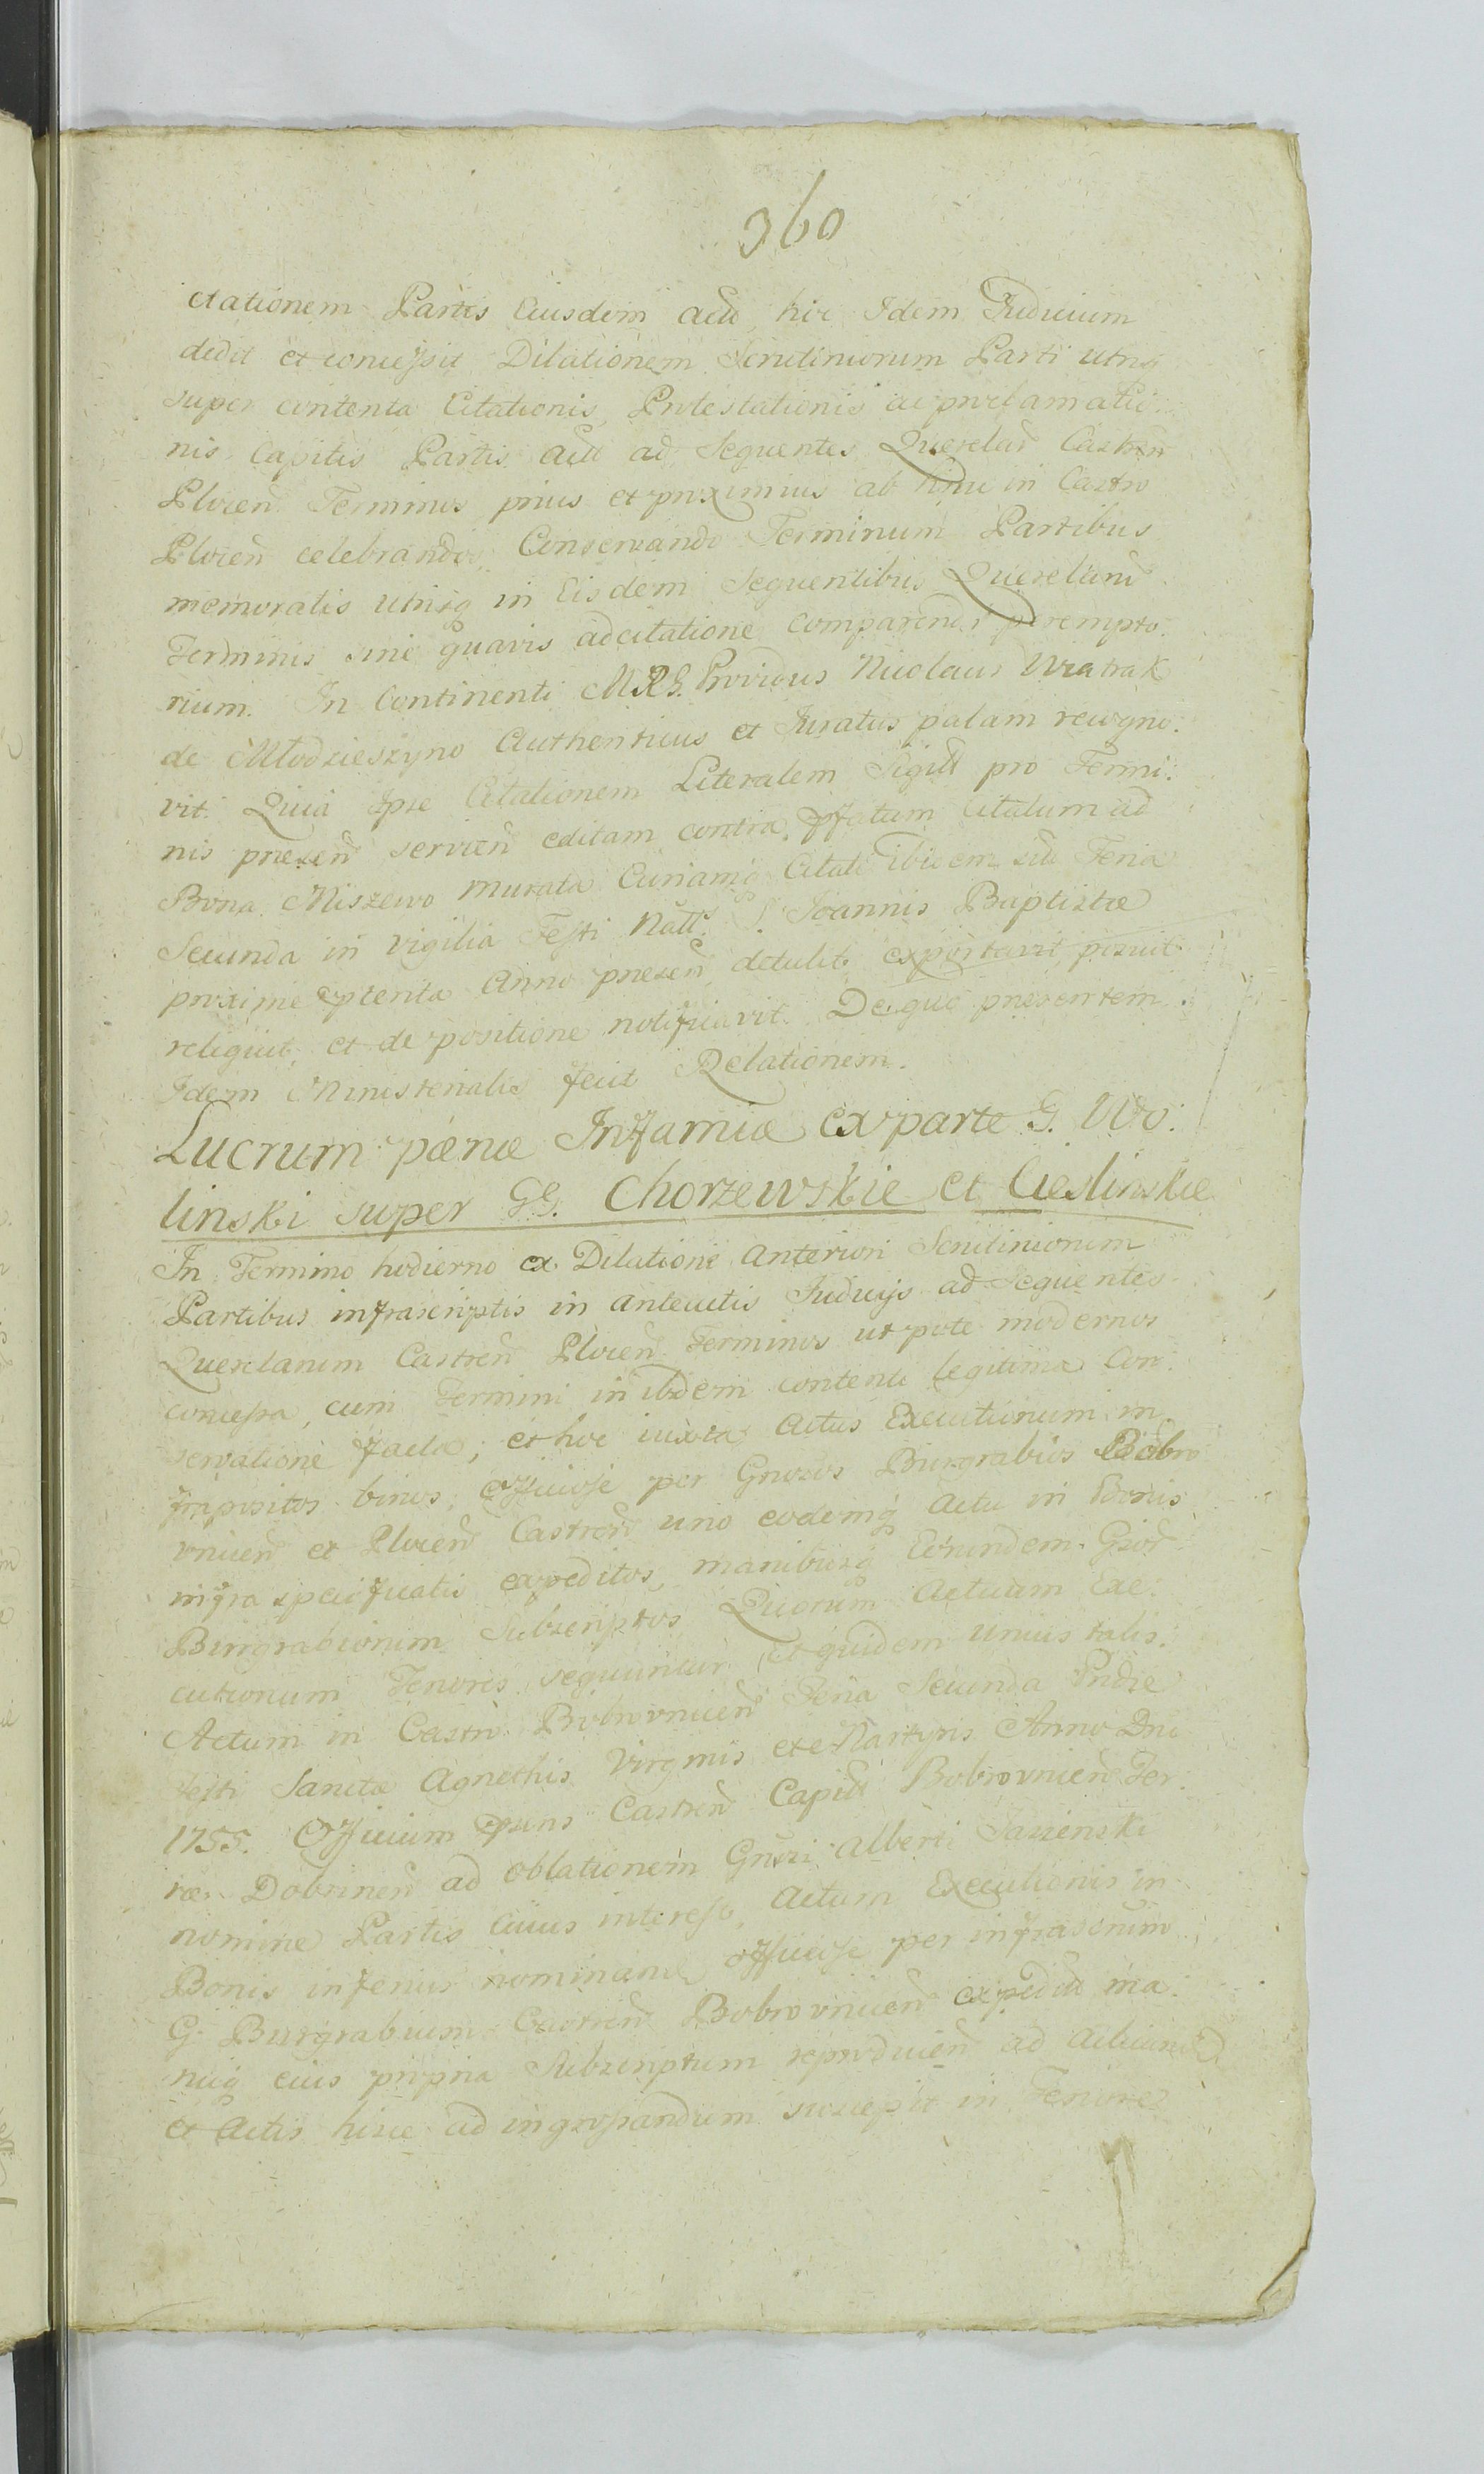 360
ctationem Partis Eiusdem Actt hoc Idem Judicium
dedit et concessit Dilationem Scrutiniorum Parti utriq
super contenta Citationis Protestationis ac proclamatio:
nis Capitis Partis Actt ad Sequentes Querelar Castren
Plocen Terminos prius et proximius ab hinc in Castro
Plocen celebrandos, Conservando Terminum Partibus
memoratis utrisq in Eisdem Sequentibus Querelarum
Terminis sine quavis adcitatione comparendi perempto:
rium. In Continenti MRG. Providus Nicolaus Wratrak
de Młodzieszyno Authenticus et Juratus palam recogno:
vit. Quia Ipse Citationem Literalem Sigill pro Termi:
nis presen servien editam contra Pfatum Citatum ad
Bona Miszewo murata Curiamq Citati ibidem sitt Feria
Secunda in vigilia Festi Natt S. Joannis Baptistæ
proxime pterita Anno presen detulit exportavit posuit
reliquit, et de positione notificavit. De quo presentem
Idem Ministerialis fecit Relationem.
Lucrum pænæ Infamiæ ex parte G. Wo:
linski super GG. Chorzewskie et Cieslinskie
In Termino hodierno ex Dilatione Anteriori Scrutiniorum
Partibus infrascriptis in antecutis Judicijs ad Sequentes
Querelarum Castren Plocen Terminos ut pote modernos
concessa, cum Termini in ibidem contenti legitima Con:
servatione facta; et hoc iuxta Actus Executionum in
frapositos binos, Officiose per Gnrosos Burgrabios Bobro
vnicen et Plocen Castren uno eodemq Actu in Bonis
infra specificatis expeditos, manibusq Eorundem Gsor
Burgrabiorum Subscriptos Quorum Actuum Exe:
cutionum Tenores sequuntur, Et quidem unius talis.
Actum in Castro Bobrovnicen Feria Secunda Pridie
Festi Sanctæ Agnethis Virginis et Martyris Anno Dni
1755. Officium Psens Castren Capitt Bobrovnicen Ter:
ræ Dobrinen ad oblationem Gnrsi Alberti Jasienski
nomine Partis Cuius interest, Actum Executionis in
Bonis inferius nominan officiose per infrascrum
G. Burgrabium Castren Bobrovnicen expeditt ma:
nuq eius propria Subscriptum reproducen ad Acticand
et Actis hisce ad ingrossandum suscepit in Tenore